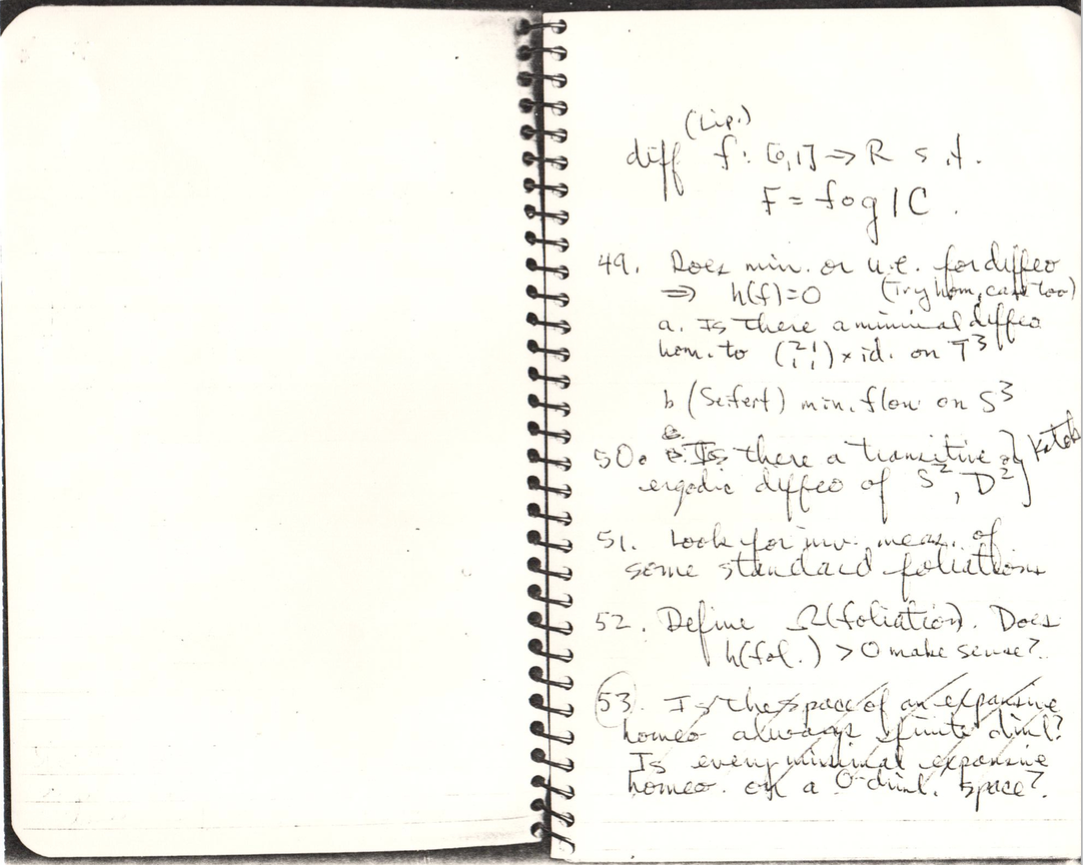 (Lip.)
diff f: [0,1] → R s.t.
F = f o g | C.
49. Does min. or u.e. for diffeo
⇒ h(f)=0 (Try hom. case too)
a. Is there a minimal diffeo
hom. to (2 1 1 1) × id. on T³
b (Seifert) min. flow on S³
50. Is there a transitive or } Katok
ergodic diffeo of S², D²
51. Look for inv. meas. of
some standard foliations
52. Define Ω(foliation). Does
h(fol.) > 0 make sense?
53. Is the space of an expansive
homeo always finite diml?
Is every minimal expansive
homeo. on a 0-diml. space?